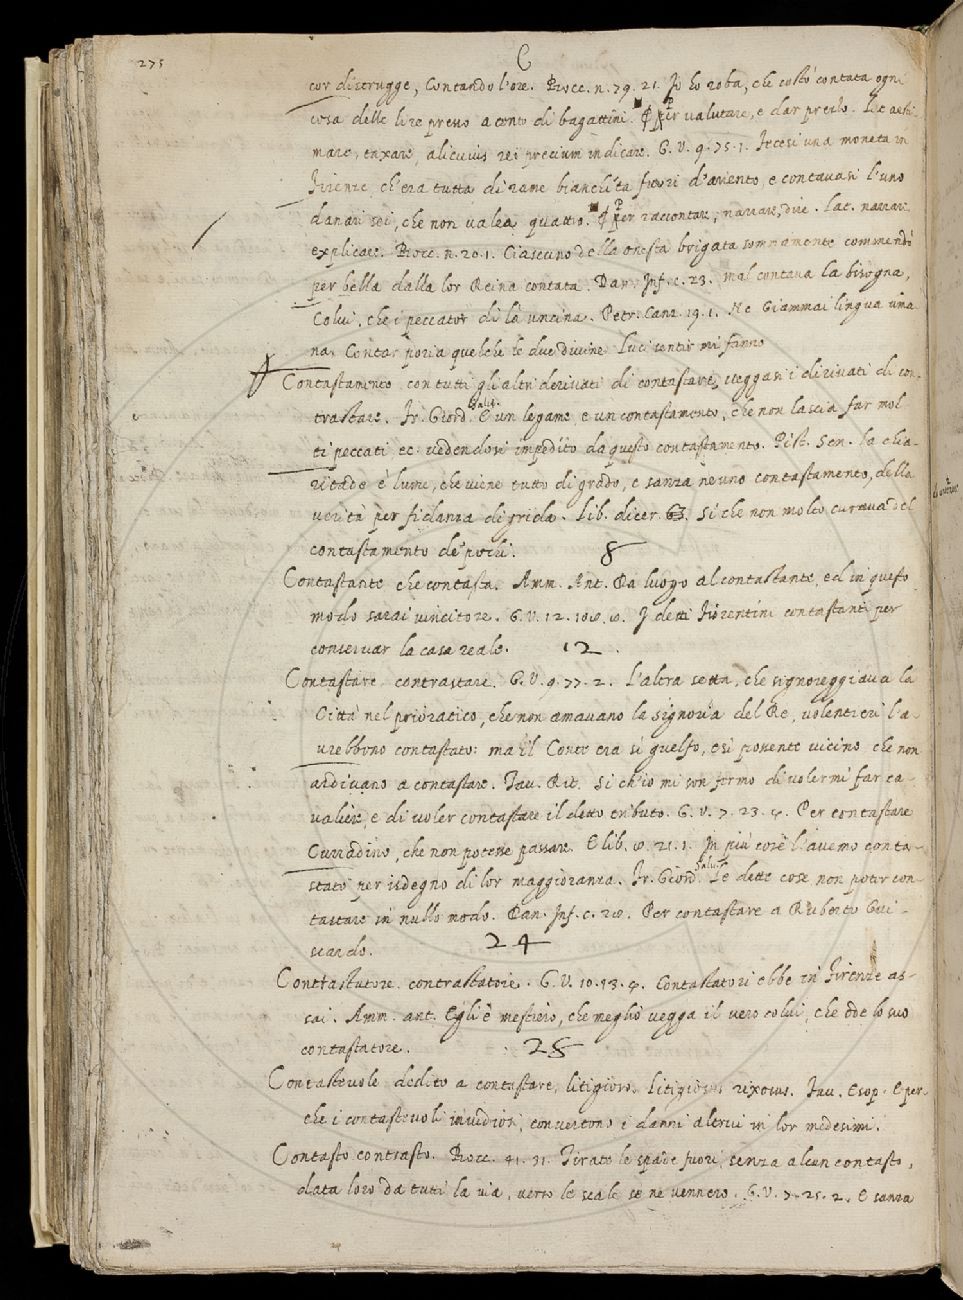 275
C
cor distrugge, Contando l'ore. Bocc. n. 79. 21. Io ho roba, che costò contata ogni
cosa delle lire presso a conto di bagattini. ¶ Per valutare, e dar prezzo. Lat. aesti-
mare, taxare, alicuius rei precium indicare. G. V. 9. 75. 1. Fecesi una moneta in
Firenze ch'era tutta di rame bianchita fuori d'ariento, e contavasi l'uno
danari sei, che non valea quattro. ¶ Per raccontare, narrare, dire. Lat. narrare
explicare. Bocc. n. 20. 1. Ciascuno della onesta brigata sommamente commendò
per bella dalla lor Reina contata. Dan. Inf. c. 23. mal contava la bisogna,
Colui, che i peccator di là uncina. Petr. Canz. 19. 1. Ne Giammai lingua uma-
na, Contar poria quelche le due divine Luci sentir mi fanno
Contastamento con tutti gli altri derivati di contastare, veggasi i dirivati di con-
trastare. Fr. Giord. Salv. E un legame, e un contastamento, che non lascia far mol
ti peccati ec. vedendosi impedito da questo contastamento. Pist. Sen. la chia-
ritade è lume, che viene tutto di grado, e sanza neuno contastamento, della
verità per fidanza di grida. Lib. dicer. 63. Si che non molto curava del
contastamento de' pochi. 8
Contastante che contasta. Amm. Ant. Da luogo al contastante, ed in questo
modo sarai vincitore. G. V. 12. I detti Fiorentini contastanti per
conservar la casa reale. 12.
Contastare contrastare. G. V. 9. 77. 2. L'altra setta, che signoreggiava la
Città nel prioratico, che non amavano la signoria del Re, volentieri l'a-
vrebbono contastato: ma il Conte era si guelfo, e si possente vicino che non
ardivano a contastare. Tav. Rit. Si ch'io mi son fermo di volermi far ca-
valiere, e di voler contastare il detto tributo. G. V. 7. 23. 4. Per contastare
Curradino, che non potesse passare. E lib. 21. 1. In più cose l'avemo conta-
stato per isdegno di lor maggioranza. Fr. Giord. Salv. Le dette cose non poter con-
tastare in nullo modo. Dan. Inf. c. 28. Per contastare a Ruberto Gui-
scardo. 24
Contastatore. contrastatore. G. V. 10. 13. 4. Contastatori ebbe in Firenze as-
sai. Amm. ant. Egli è mestiero, che meglio vegga il vero colui, che ode lo suo
contastatore. 28
Contastevole dedito a contastare, litigioso. Litigiosus rixosus. Fav. Esop. E per-
che i contastevoli invidiosi, convertono i danni altrui in lor medesimi.
Contasto contrasto. Bocc. 41. 31. Tirate le spade fuori, senza alcun contasto,
data loro da tutti la via, verso le scale se ne vennero. G. V. 7. 25. 2. E sanza